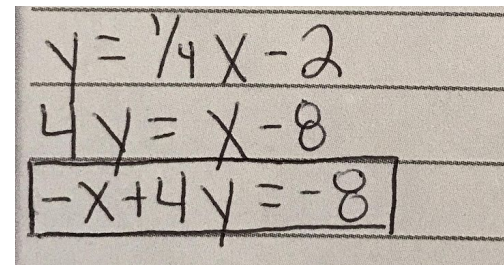 y = 1/4 x - 2
4y = x - 8
-x + 4y = -8